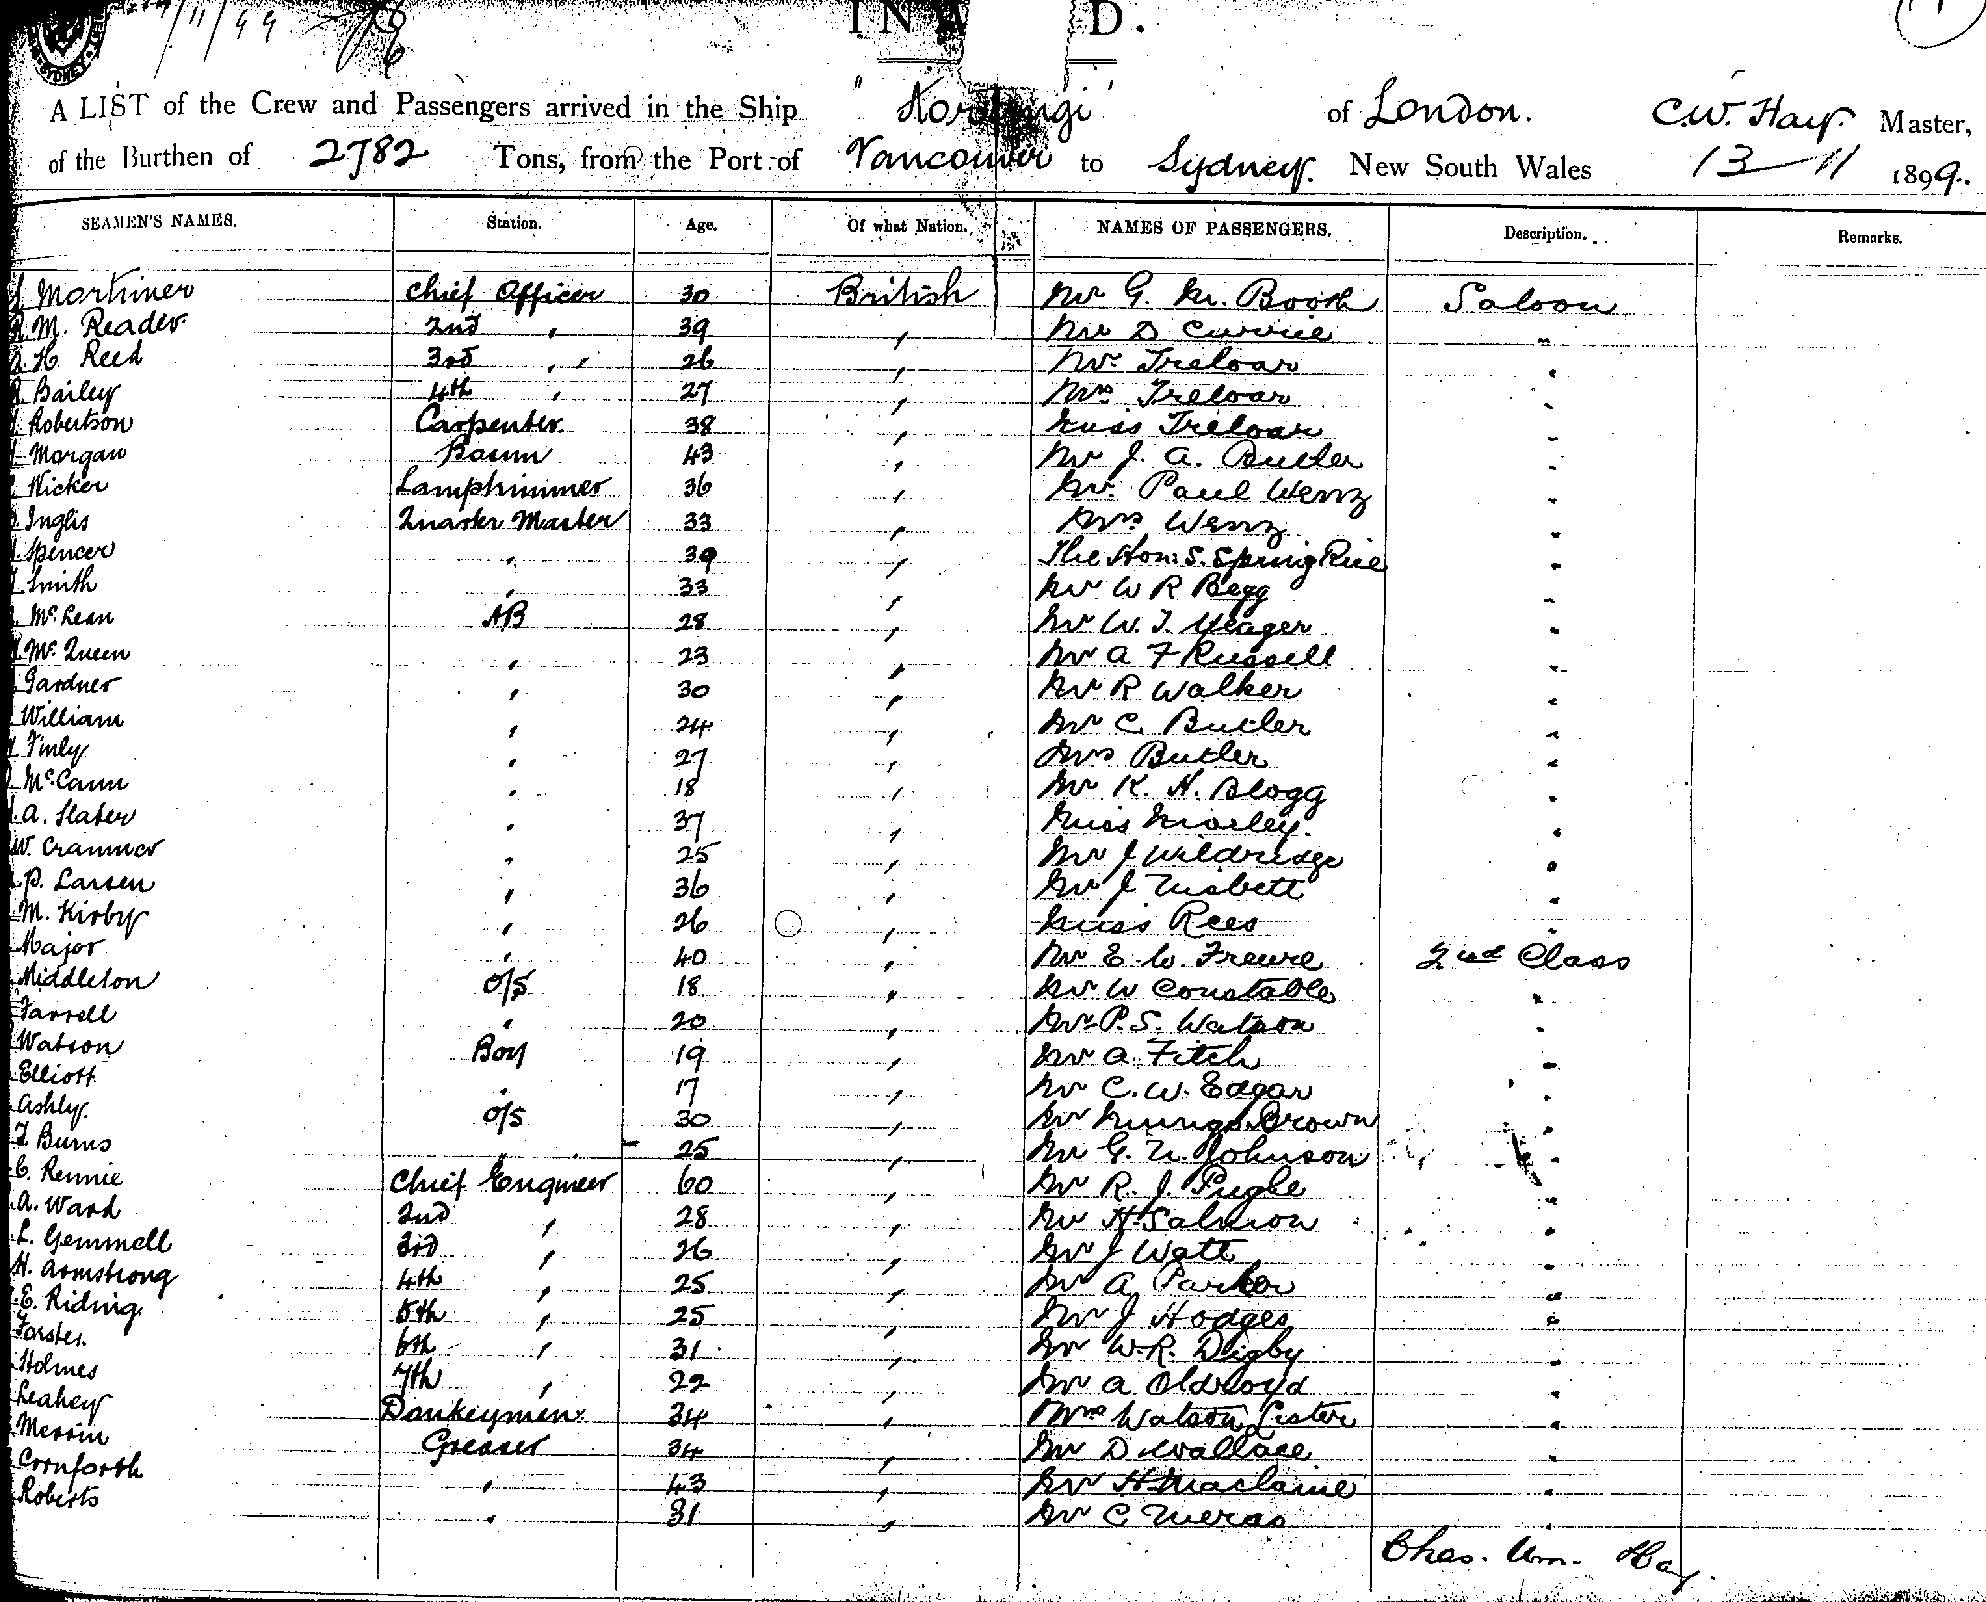 SYDNEY
7/11/99
IN D.
A LIST of the Crew and Passengers arrived in the Ship " of London. C.W. Hay. Master,
of the Burthen of 2782 Tons, from the Port of Vancouver to Sydney. New South Wales 13-11 1899.
SEAMEN'S NAMES. Station. Age. Of what Nation. NAMES OF PASSENGERS. Description. Remarks.
Mortimer Chief Officer 30 British Mr G. M. Booth Saloon
M. Reader 2nd " 39 " Mr D Currie "
H Reed 3rd " 26 " Mr. Treloar "
Bailey 4th " 27 " Mrs Treloar "
Robertson Carpenter 38 " Miss Treloar "
Morgan Bosun 43 " Mr J. A. Butler "
Wicker Lamptrimmer 36 " Mr. Paul Wenz "
Inglis Quarter Master 33 " Mrs Wenz "
Spencer " 39 " The Hon: S. Spring Rice "
Smith " 33 " Mr W R Begg "
McLean AB 28 " Mr W. T. Yeager "
McQueen " 23 " Mr A F Russell "
Gardner " 30 " Mr R Walker "
William " 24 " Mr C Butler "
Finly " 27 " Mrs Butler "
McCann " 18 " Mr K. H. Blogg "
A. Slater " 37 " Miss Morley. "
W. Cranmer " 25 " Mr J Wildridge "
P. Larsen " 36 " Mr J Nisbett "
M. Kirby " 26 " Miss Rees "
Major " 40 " Mr E W. Frewre 2nd Class
Middleton O/S 18 " Mr W Constable "
Farrell " 20 " Mr P. S. Watson "
Watson Boy 19 " Mr A. Fitch "
Elliott " 17 " Mr C. W. Edgar "
Ashly. O/S 30 " Mr Mungo Brown "
T. Burns " 25 " Mr G. N. Johnson "
C. Rennie Chief Engineer 60 " Mr R. J. Pughe "
A. Ward 2nd " 28 " Mr H Salmon "
L. Gemmell 3rd " 26 " Mr J Watt "
H. Armstrong 4th " 25 " Mr A Parker "
E. Riding 5th " 25 " Mr J Hodges "
Forster 6th " 31 " Mr W. R. Digby "
Holmes 7th " 22 " Mr A Oldroyd "
Leahey Donkeymen 34 " Mrs Watson Lister "
Merrin Greaser 34 " Mr D Wallace "
Cornforth " 43 " Mr H Maclaine "
Roberts " 31 " Mr C "
Chas. Wm. Hay.